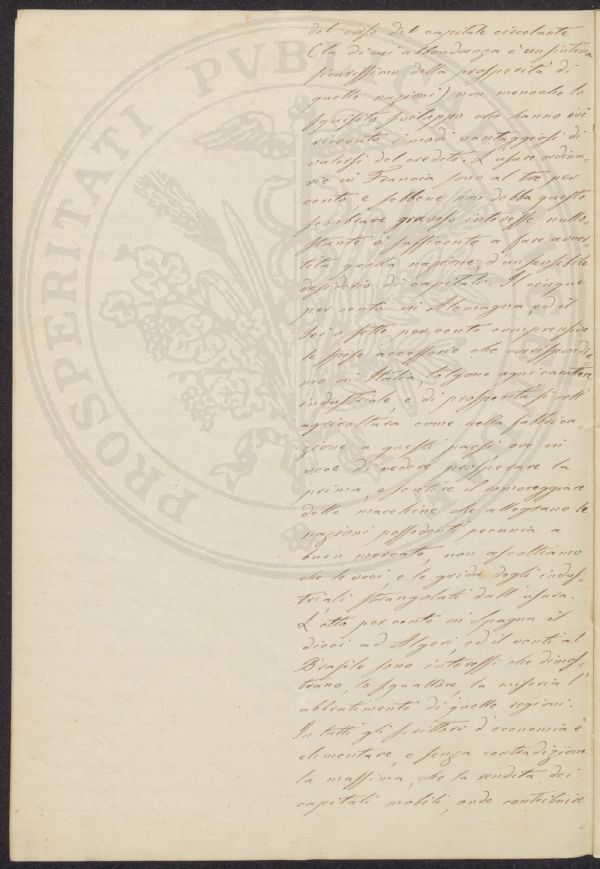 del caso del capitale circolante
(la di cui abbondanza è un sintoma
sicurissimo della prosperità di
quelle nazioni) non meno che lo
squisito sviluppo che hanno ivi
ricevuto i modi vantaggiosi di
valersi del credito. L'usure ordina-
rie in Francia sono al tre per
cento, e sebbene non debba questo
sembrare gravoso interesse nullo-
stante è sufficente a fare avver-
tita quella nazione d'un sensibile
desiderio di capitali. Il cinque
per cento in Alemagna, ed il
sei o sette per cento comprensivo
le spese accessorie che corrispondia-
mo in Italia, tolgono ogni carattere
industriale, e di prosperità sì nell'
agricoltura come nella fabbrica-
zione a questi paesi, ove in
vece di vedere prosperare la
prima, e sentire il romoreggiare
delle macchine che allegrano le
nazioni possedenti pecunia a
buon mercato, non ascoltiamo
che le voci, e le grida degli indus-
triali strangolati dall'usura.
L'otto per cento in Spagna il
dieci ad Algeri, ed il venti al
Brasile sono interessi che dimos-
trano, lo squallore, la miseria l'
abbrutimento di quelle regioni.
In tutti gli scrittori d'economia è
elementare, e senza contradizione
la massima, che la rendita dei
capitali mobili, onde contribuire
PROSPERITATI PVBL